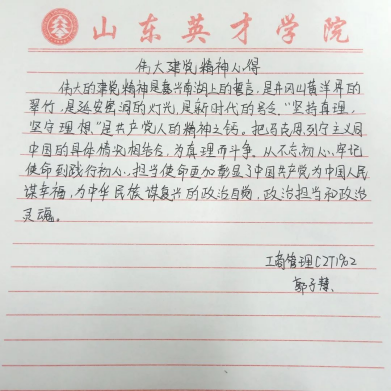 山东英才学院
伟大建党精神心得
伟大的建党精神是嘉兴南湖上的誓言，是井冈山黄洋界的
翠竹，是延安窑洞的灯光，是新时代的号令。“坚持真理，
坚守理想”是共产党人的精神之钙。把马克思列宁主义同
中国的具体情况相结合，为真理而斗争。从不忘初心，牢记
使命到践行初心，担当使命更加彰显了中国共产党为中国人民
谋幸福，为中华民族谋复兴的政治自觉，政治担当和政治
灵魂。
工商管理C2T1902
郭子慧